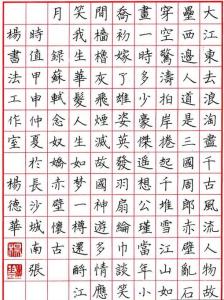 大江東去浪淘盡千古風流人物故
壘西邊人道是三國周郎赤壁亂石
穿空驚濤拍岸捲起千堆雪江山如
畫一時多少豪傑遙想公瑾當年小
喬初嫁了雄姿英發羽扇綸巾談笑
間檣櫓灰飛煙滅故國神遊多情應
笑我生華髮人生如夢一樽還酹江
月 錄蘇軾念奴嬌赤壁懷古
時值甲申仲夏於長沙城南張
楊書法工作室 楊德華